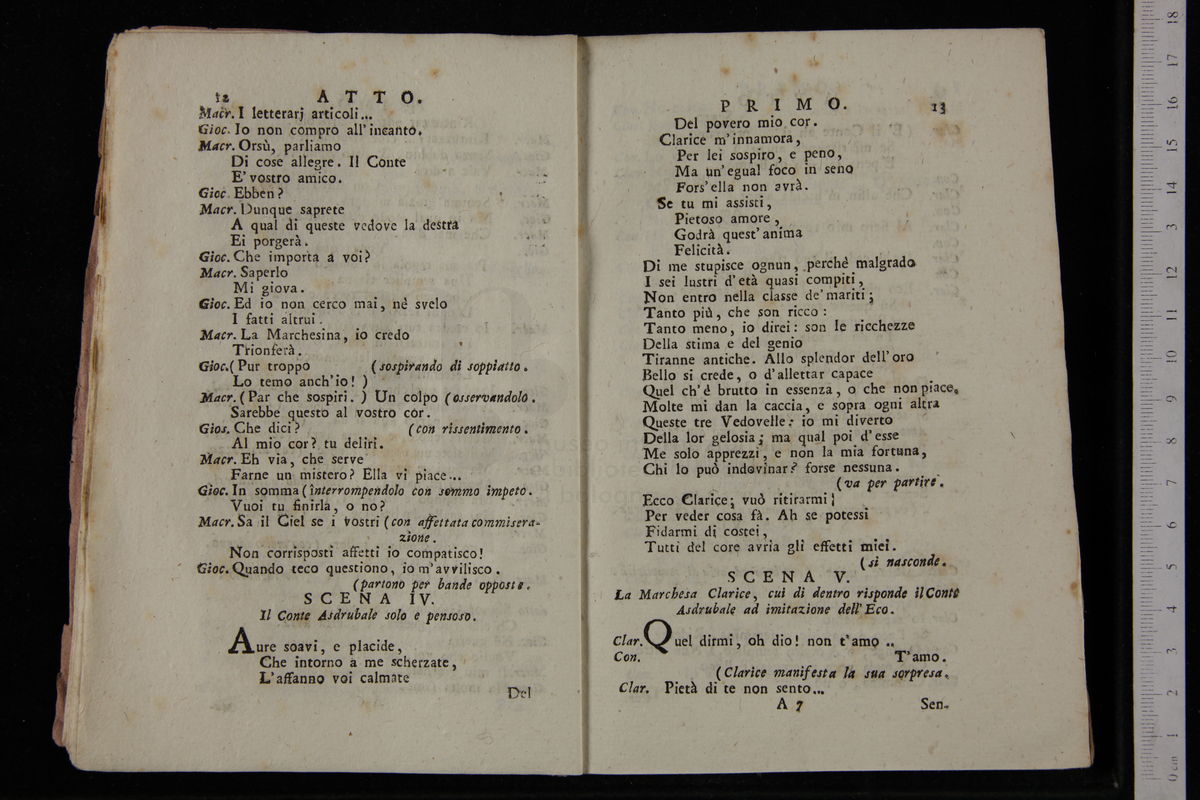 12 A T T O.
Macr. I letterarj articoli...
Gioc. Io non compro all'incanto.
Macr. Orsù, parliamo
Di cose allegre. Il Conte
E' vostro amico.
Gioc. Ebben?
Macr. Dunque saprete
A qual di queste vedove la destra
Ei porgerà.
Gioc. Che importa a voi?
Macr. Saperlo
Mi giova.
Gioc. Ed io non cerco mai, nè svelo
I fatti altrui.
Macr. La Marchesina, io credo
Trionferà.
Gioc. (Pur troppo (sospirando di soppiatto.
Lo temo anch'io! )
Macr. (Par che sospiri. ) Un colpo (osservandolo.
Sarebbe questo al vostro cor.
Gios. Che dici? (con rissentimento.
Al mio cor? tu deliri.
Macr. Eh via, che serve
Farne un mistero? Ella vi piace...
Gioc. In somma (interrompendolo con sommo impeto.
Vuoi tu finirla, o no?
Macr. Sa il Ciel se i vostri (con affettata commisera-
zione.
Non corrisposti affetti io compatisco!
Gioc. Quando teco questiono, io m'avvilisco.
(partono per bande opposte.
S C E N A IV.
Il Conte Asdrubale solo e pensoso.
Aure soavi, e placide,
Che intorno a me scherzate,
L'affanno voi calmate
Del
P R I M O. 13
Del povero mio cor.
Clarice m'innamora,
Per lei sospiro, e peno,
Ma un'egual foco in seno
Fors'ella non avrà.
Se tu mi assisti,
Pietoso amore,
Godrà quest'anima
Felicità.
Di me stupisce ognun, perchè malgrado
I sei lustri d'età quasi compiti,
Non entro nella classe de'mariti;
Tanto più, che son ricco:
Tanto meno, io direi: son le ricchezze
Della stima e del genio
Tiranne antiche. Allo splendor dell'oro
Bello si crede, o d'allettar capace
Quel ch'è brutto in essenza, o che non piace.
Molte mi dan la caccia, e sopra ogni altra
Queste tre Vedovelle: io mi diverto
Della lor gelosia; ma qual poi d'esse
Me solo apprezzi, e non la mia fortuna,
Chi lo può indovinar? forse nessuna.
(va per partire.
Ecco Clarice; vuò ritirarmi
Per veder cosa fà. Ah se potessi
Fidarmi di costei,
Tutti del core avria gli effetti miei.
(si nasconde.
S C E N A V.
La Marchesa Clarice, cui di dentro risponde il Conte
Asdrubale ad imitazione dell'Eco.
Clar. Quel dirmi, oh dio! non t'amo ..
Con. T'amo.
(Clarice manifesta la sua sorpresa.
Clar. Pietà di te non sento...
A 7 Sen-
0 cm 1 2 3 4 5 6 7 8 9 10 11 12 13 14 15 16 17 18